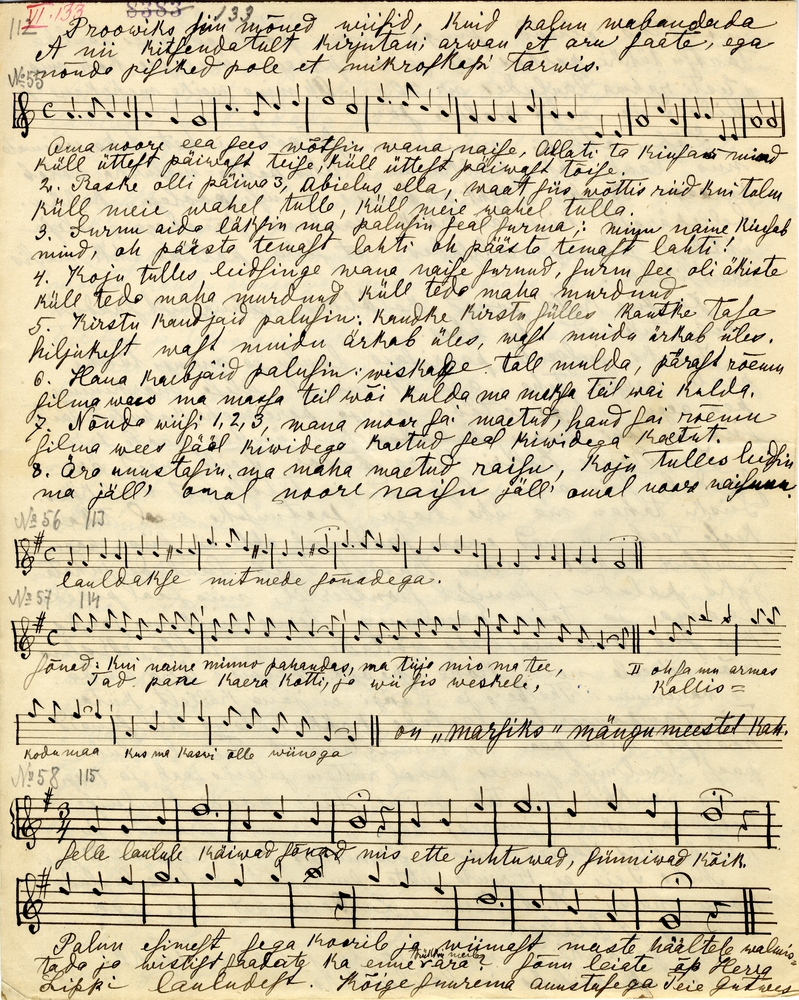 VI. 133
5383
133
112
Proowiks siin mõned wiisid, kuid palun wabandada
A nii kitsendatult kirjutan; arwan et aru saate, ega
nõnda pisiked pole et mikroskopi tarwis.
№ 55
Oma noore eea sees wõtsin wana naise, Allati ta kiusas mind
küll üttest päiwast teise, küll üttest päiwast tõise.
2. Raske olli päiwa 3, abielus ella, waat siis wõttis riid kui talu
küll meie wahel tulle, küll meie wahel tulla.
3. Surnu aida läksin ma palusin seal surma; minu naine kiusab
mind, oh päästa temast lahti oh pääste temast lahti!
4. Koju tulles leidsinge wana naise surnud, surm see oli äkiste
küll teda maha murdnud küll teda maha murdnud
5. Kirstu kandjaid palusin: kandke kirstu sülles kandke tasa
hiljukest wast muidu ärkab üles, wast muidu ärkab üles.
6. Haua kaebjaid palusin: wiskage tall mulda, pärast rõemu
silma wees ma massa teil wõi kulda ma maksa teil wai kulda.
7. Nõnda wiisi 1, 2, 3, wana moor sai maetud, haud sai rõemu
silma wees sääl kiwidega kaetud seal kiwidega kaetut.
8. Ära unustasin ma maha maetud naisu, koju tulles leidsin
ma jäll' omal noore naisu jäll' omal noore naisuu.
№ 56 113
lauldakse mitmede sõnadega.
№ 57 114
sõnad: Kui naine minno pahandas, ma tiija mio ma tee, II oh sa mu armas
Tad. pane kaera kotti, ja wii siis weskele, Kallis=
kodumaa kus ma kaswi ölle wiinega on „marsiks" mängumeestel kah.
№ 58 115
Selle laulule käiwad sõnad mis ette juhtuwad, sünniwad kõik.
Palun esimest sega koorile ja wiimast meeste häältele walmis=
tada ja wistist saadate ka enne ära? sõnu leiate õp Herra
Lippi lauludest. Kõige suurema auustusega Teie